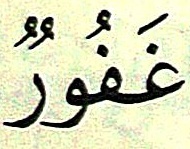 غَفُورٌ